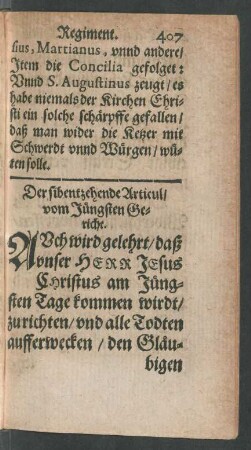 Regiment. 407
sius, Martianus, vnnd andere/
Item die Concilia gefolget:
Vnnd S. Augustinus zeugt/ es
habe niemals der Kirchen Chri-
sti ein solche schärpffe gefallen/
daß man wider die Ketzer mit
Schwerdt vnnd Würgen/ wü-
ten solle.
Der sibentzehende Articul/
vom Jüngsten Ge-
richt.
AVch wird gelehrt/ daß
vnser HERR JEsus
CHristus am Jüng-
sten Tage kommen wirdt/
zu richten/ vnd alle Todten
aufferwecken/ den Gläu-
bigen